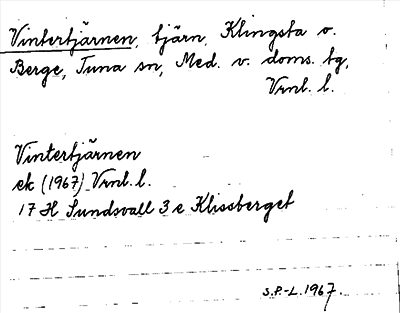 Vintertjärnen, tjärn, Klingsta o.
Berge, Tuna sn, Med. v. doms. tg,
Vrnl. l.
Vintertjärnen
ek (1967) Vrnl. l.
17 H Sundsvall 3 e Klissberget
S.P.-L. 1967.